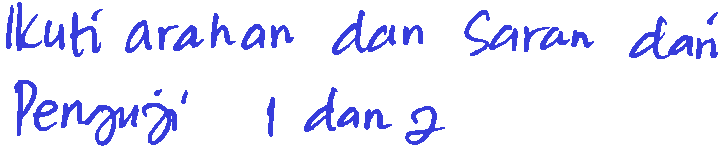 Ikuti arahan dan saran dari
Penguji 1 dan 2